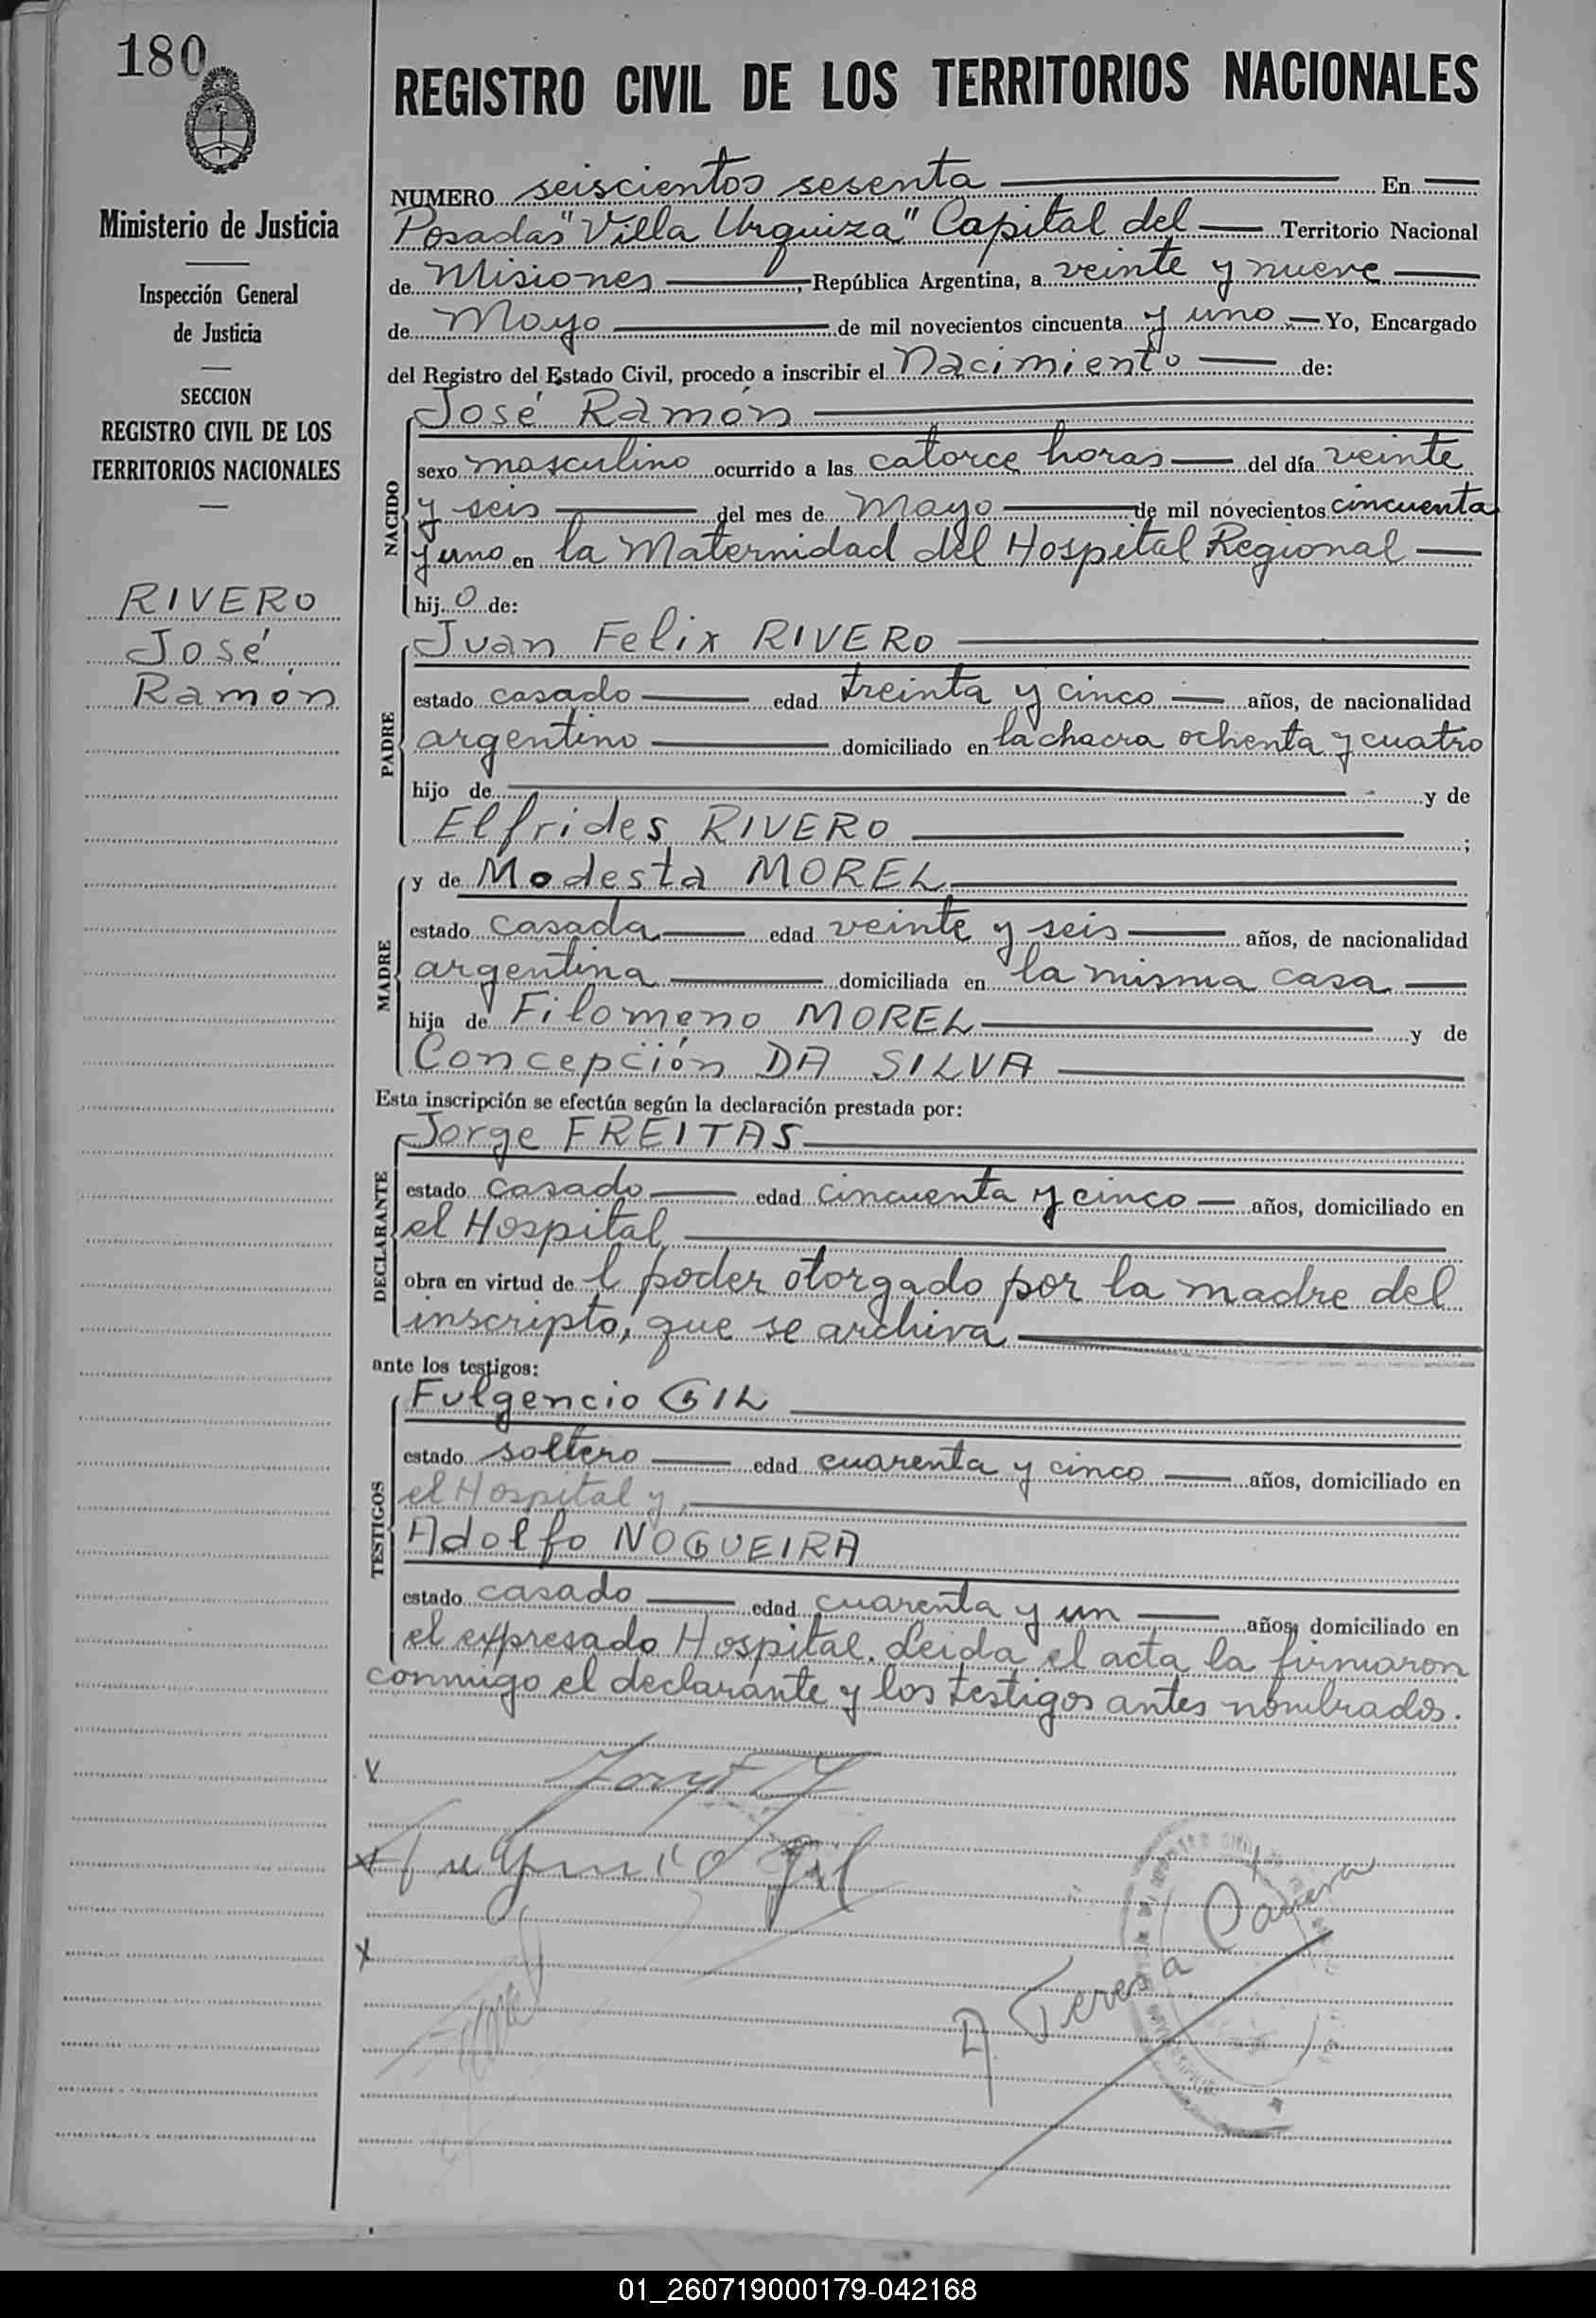 180
Ministerio de Justicia
Inspección General
de Justicia
SECCION
REGISTRO CIVIL DE LOS
TERRITORIOS NACIONALES
RIVERO
José
Ramón
REGISTRO CIVIL DE LOS TERRITORIOS NACIONALES
NUMERO seiscientos sesenta En
Posadas "Villa Urquiza" Capital del Territorio Nacional
de Misiones, República Argentina, a veinte y nueve
de Mayo de mil novecientos cincuenta y uno. Yo, Encargado
del Registro del Estado Civil, procedo a inscribir el Nacimiento de:
NACIDO
José Ramón
sexo masculino ocurrido a las catorce horas del día veinte
y seis del mes de Mayo de mil novecientos cincuenta
y uno en la Maternidad del Hospital Regional
hijo de:
PADRE
Juan Felix RIVERO
estado casado edad treinta y cinco años, de nacionalidad
argentino domiciliado en la chacra ochenta y cuatro
hijo de y de
Elfrides RIVERO ;
MADRE
y de Modesta MOREL
estado casada edad veinte y seis años, de nacionalidad
argentina domiciliada en la misma casa
hija de Filomeno MOREL y de
Concepción DA SILVA
Esta inscripción se efectúa según la declaración prestada por:
DECLARANTE
Jorge FREITAS
estado casado edad cincuenta y cinco años, domiciliado en
el Hospital
obra en virtud del poder otorgado por la madre del
inscripto, que se archiva
ante los testigos:
TESTIGOS
Fulgencio GIL
estado soltero edad cuarenta y cinco años, domiciliado en
el Hospital y
Adolfo NOGUEIRA
estado casado edad cuarenta y un años, domiciliado en
el expresado Hospital. Leida el acta la firmaron
conmigo el declarante y los testigos antes nombrados.
x
x Fulgencio Gil
x
A Teresa
01_260719000179-042168